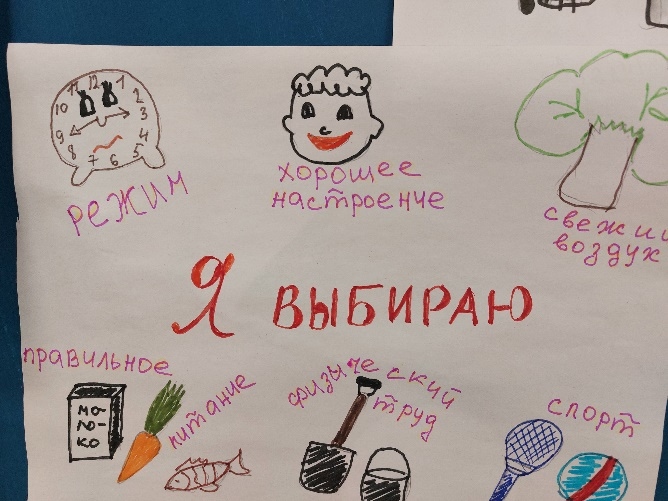 11 12 1
10 2
9 3
8 4
7 6 5
режим
хорошее
настроение
свежий
воздух
Я ВЫБИРАЮ
правильное
питание
мо
ло-
ко
физический
труд
спорт